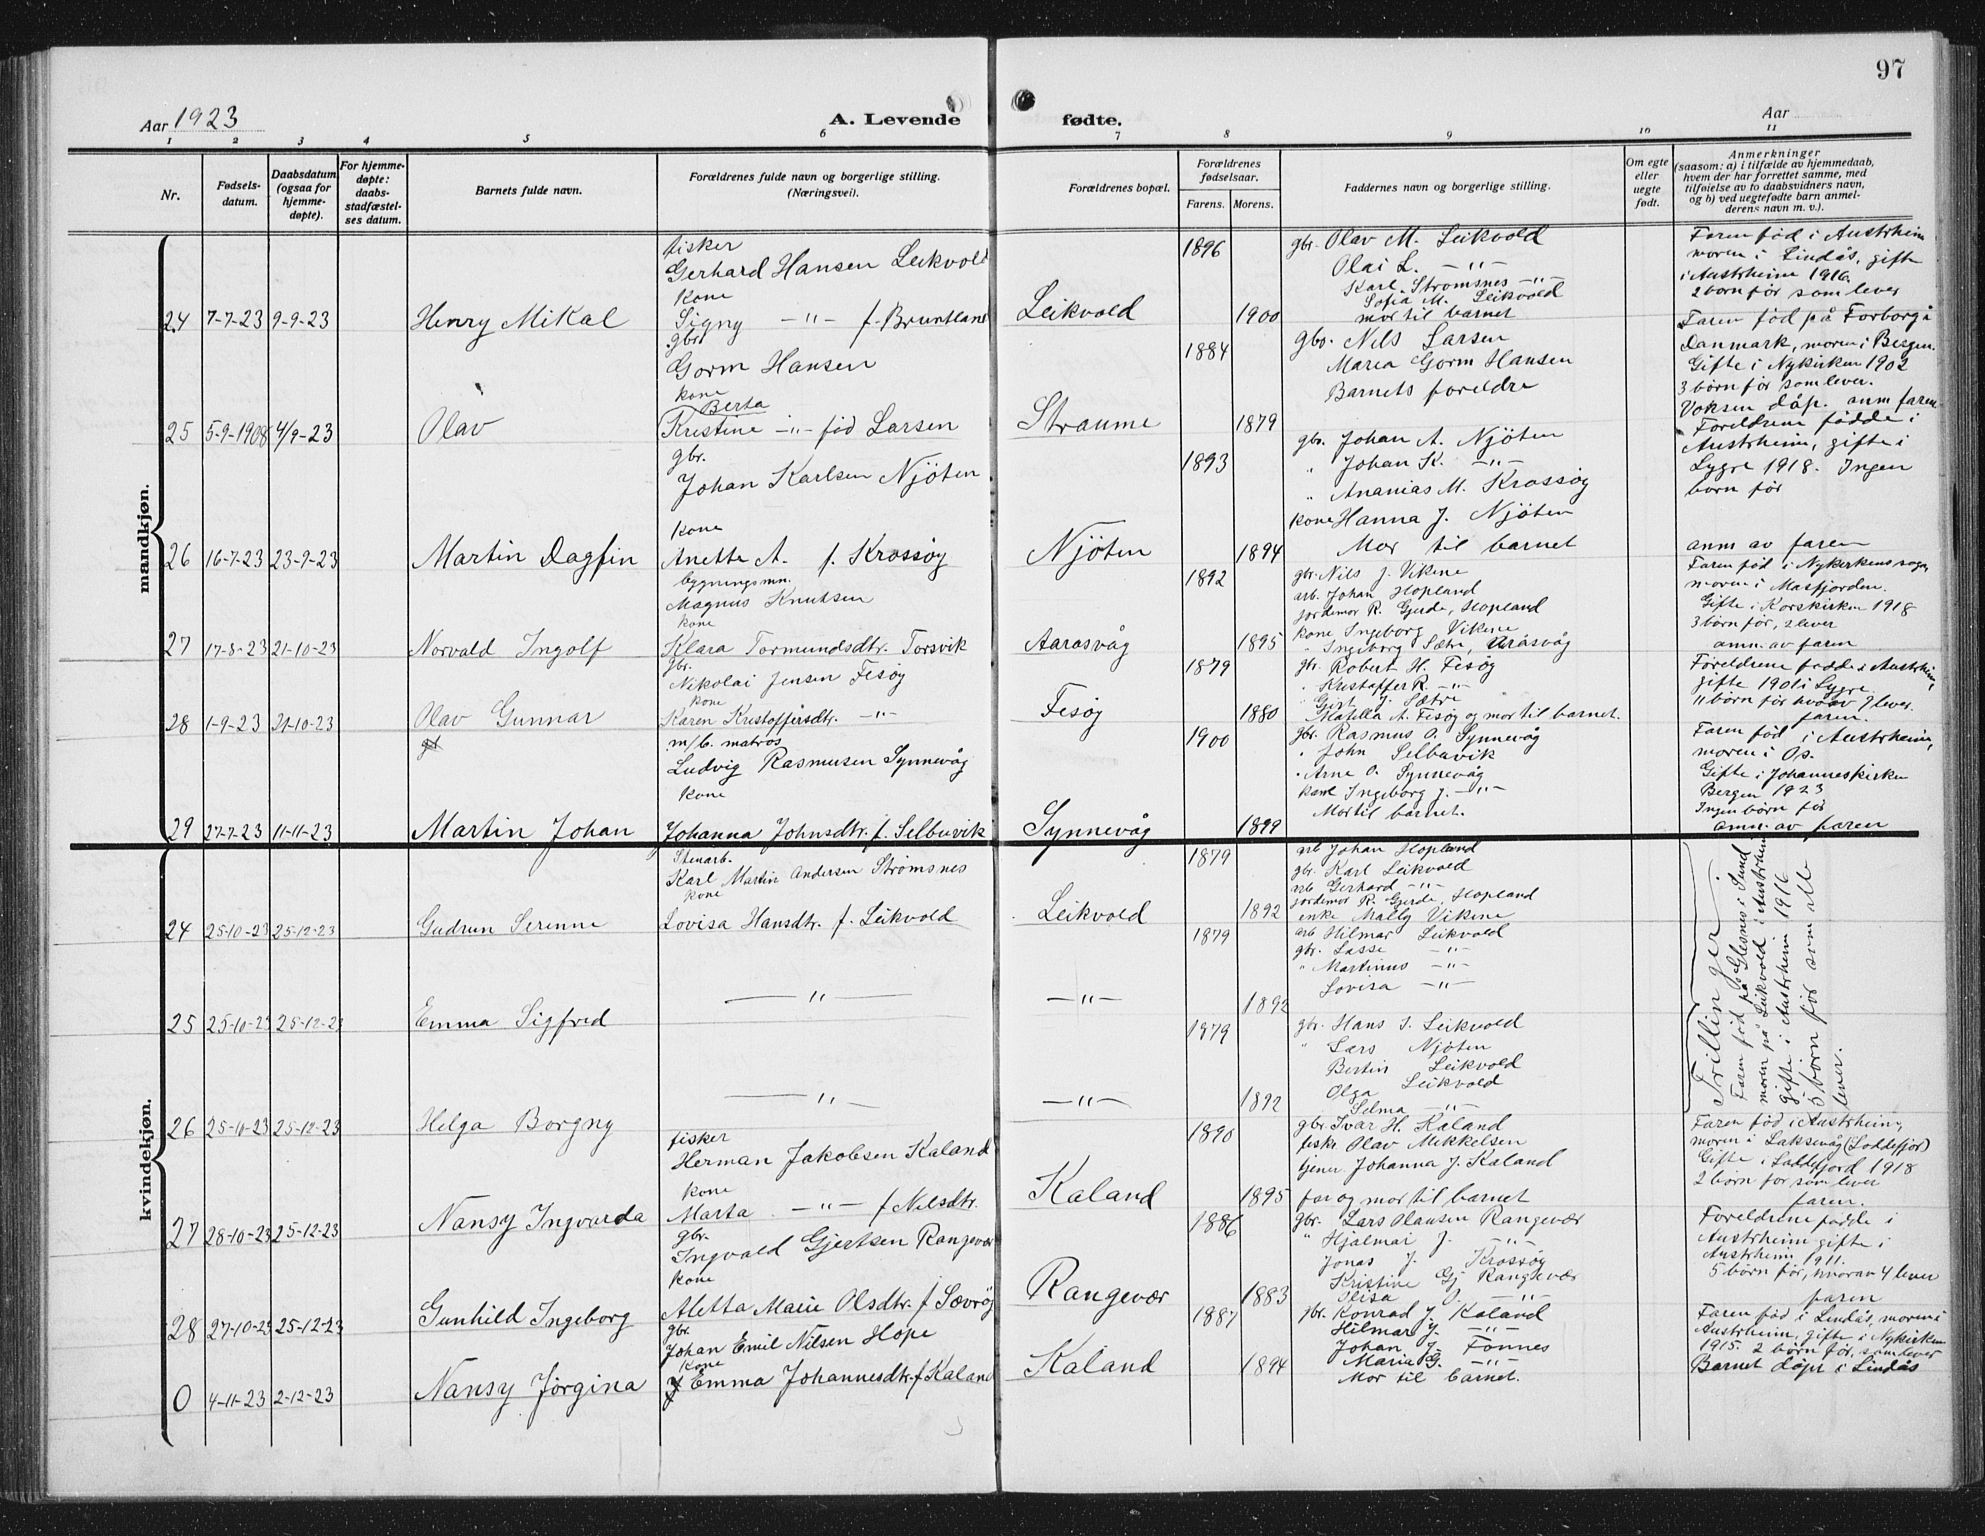 97
Aar 1923
A. Levende
fødte.
Aar
1 2 3 4 5 6 7 8 9 10 11
Nr.
Fødsels-
datum.
Daabsdatum
(ogsaa for
hjemme-
døpte).
For hjemme-
døpte:
daabs-
stadfæstel-
ses datum.
Barnets fulde navn.
Forældrenes fulde navn og borgerlige stilling.
(Næringsvei).
Forældrenes bopæl.
Forældrenes
fødselsaar.
Farens. Morens.
Faddernes navn og borgerlige stilling.
Om egte
eller
uegte
født.
Anmerkninger
(saasom: a) i tilfælde av hjemmedaab,
hvem der har forrettet samme, med
tilføielse av to daabsvidners navn,
og b) ved uegtefødte barn anmel-
derens navn m. v.).
mandkjøn.
24 7-7-23 9-9-23
Henry Mikal
fisker
Gerhard Hansen Leikvold
kone
Signy -"- f. Bruntland
Leikvold
1896
1900
gbr. Olav M. Leikvold
Olai L. -"-
Karl Strømsnes -"-
Sofia M. Leikvold
mor til barnet
Faren fød i Austrheim
moren i Lindås, gifte
i Austrheim 1916
2 born før som lever
25 5-9-1908 4/9-23
Olav
gbr
Gorm Hansen
kone
Berta
Kristine -"- fød Larsen
Straume
1884
1879
gbr. Nils Larsen
Maria Gorm Hansen
Barnets foreldre
Faren fød på Forborg i
Danmark, moren i Bergen.
Gifte i Nykirken 1902
3 børn før som lever.
Voksen døp. anm faren
26 16-7-23 23-9-23
Martin Dagfin
gbr.
Johan Karlsen Njöten
kone
Anette A. f. Krossøy
Njöten
1893
1894
gbr. Johan A. Njöten
" Johan K. -"-
" Ananias M. Krossøy
kone Hanna J. Njöten
Mor til barnet
Foreldrene fødde i
Austrheim, gifte i
Lygre 1918. Ingen
born før
anm av faren
27 17-8-23 21-10-23
Norvald Ingolf
bygningsmn.
Magnus Knutsen
kone
Klara Tormundsdtr. Torsvik
Aarasvåg
1892
1895
gbr. Nils J. Vikene
arb. Johan Hopland
jordemor R. Gjerde, Hopland
kone Ingeborg Vikene
" Ingeborg Sætre, Aråsvåg
Faren fød i Nykirkens sogn,
moren i Masfjorden.
Gifte i Korskirken 1918
3 børn før, 2 lever
anm. av faren
28 1-9-23 21-10-23
Olav Gunnar
gbr.
Nikolai Jensen Fesøy
kone
Karen Kristoffersdtr. -"-
Fesøy
1879
1880
gbr. Robert H. Fesøy
" Kristoffer R. -"-
" Gert J. Sætre
Matella A. Fesøy og mor til barnet.
Foreldrene fødde i Austrheim,
gifte 1901 i Lygre
11 børn før hvorav 7 lever.
faren.
29 27-7-23 11-11-23
Martin Johan
m/b. matros
Ludvig Rasmusen Synnevåg
kone
Johanna Johnsdtr. f. Selbuvik
Synnevåg
1900
1899
gbr. Rasmus O. Synnevåg
" John Selbuvik
" Arne O. Synnevåg
kone Ingeborg J. -"-
Mor til barnet.
Faren fød i Austrheim,
moren i Os.
Gifte i Johanneskirken
Bergen 1923
Ingen børn før
anm. av faren
kvindekjøn.
24 25-10-23 25-12-23
Gudrun Serenne
Stenarb.
Karl Martin Andersen Strømsnes
kone
Lovisa Hansdtr. f. Leikvold
Leikvold
1879
1892
arb Johan Hopland
gbr. Karl Leikvold
arb Gerhard -"-
jordemor R. Gjerde, Hopland
enke Mally Vikene
Trillinger.
Faren fød på Glesnes i Sund
moren på Leikvold i Austrheim
gifte i Austrheim 1916
5 børn før som alle
lever.
25 25-10-23 25-12-23
Emma Sigfred
-"-
-"-
1879
1892
arb Hilmar Leikvold
gbr. Lasse -"-
" Martinus -"-
Lovisa -"-
26 25-10-23 25-12-23
Helga Borgny
-"-
-"-
1979
1892
gbr. Hans J. Leikvold
" Lars Njöten
Bertin Leikvold
Olga Leikvold
Selma -"-
27 28-10-23 25-12-23
Nansy Ingvarda
fisker
Herman Jakobsen Kaland
kone
Marta -"- f Nilsdtr.
Kaland
1890
1895
gbr. Ivar H. Kaland
fiskr. Olav Mikkelsen
tjener Johanna J. Kaland
far og mor til barnet
Faren fød i Austrheim,
moren i Laksevåg (Loddefjor)
Gifte i Loddefjord 1918
2 børn før som lever
faren.
28 27-10-23 25-12-23
Gunhild Ingeborg
gbr.
Ingvald Gjertsen Rangevær
kone
Aletta Marie Olsdtr. f Sævrøy
Rangevær
1886
1883
gbr. Lars Olausen Rangevær
" Hjalmar J. -"-
Jonas J. Krossøy
Kristine Gj Rangevær
Elisa J. -"-
Foreldrene fødde i
Austrheim gifte i
Austrheim 1911.
5 børn før, hvorav 4 lever
faren
0 4-11-23 2-12-23
Nansy Jørgina
gbr.
Johan Emil Nilsen Hope
kone
Emma Johannesdtr. f Kaland
Kaland
1887
1894
gbr. Konrad J. Kaland
Hilmar J. -"-
Johan J. Fønnes
Maria G. -"-
Mor til barnet.
Faren fød i Lindås, moren i
Austrheim, gifte i Nykirken
1915. 2 børn før, som lever
Barnet døpt i Lindås